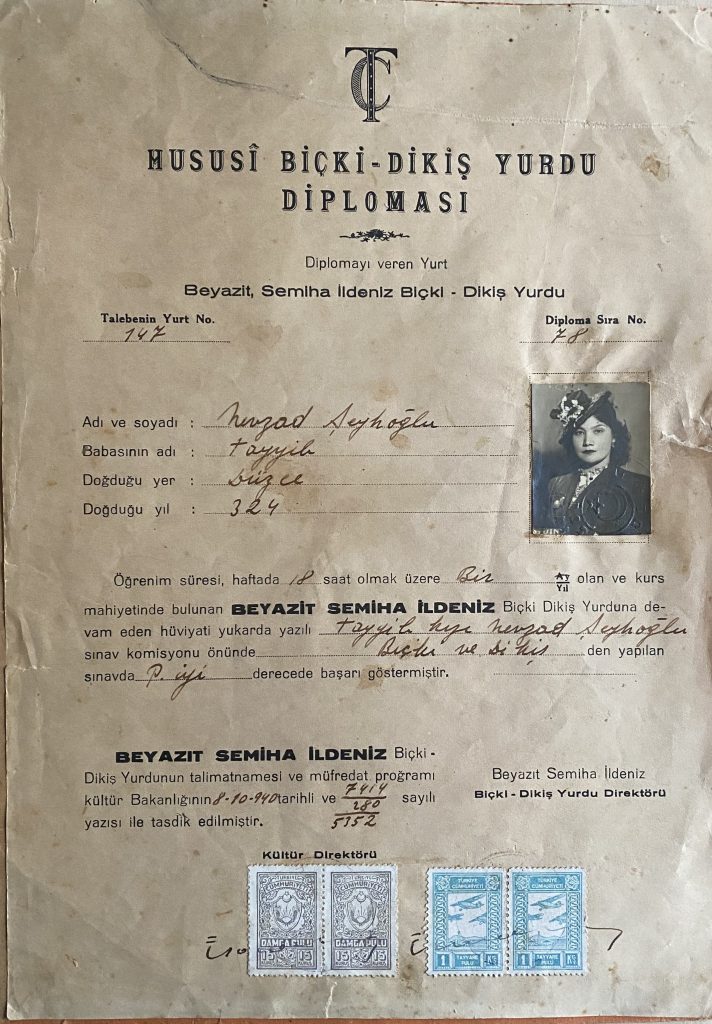 TC
HUSUSÎ BİÇKİ-DİKİŞ YURDU
DİPLOMASI
Diplomayı veren Yurt
Beyazit, Semiha İldeniz Biçki - Dikiş Yurdu
Talebenin Yurt No.
147
Diploma Sıra No.
78
Adı ve soyadı : Nevzad Şeyhoğlu
Babasının adı : Tayyib
Doğduğu yer : Düzce
Doğduğu yıl : 324
Öğrenim süresi, haftada 18 saat olmak üzere Bir Ay Yıl olan ve kurs
mahiyetinde bulunan BEYAZIT SEMİHA İLDENİZ Biçki Dikiş Yurduna de-
vam eden hüviyati yukarda yazılı Tayyib kızı Nevzad Şeyhoğlu
sınav komisyonu önünde Biçki ve Dikiş den yapılan
sınavda P. iyi derecede başarı göstermiştir.
BEYAZIT SEMİHA İLDENİZ Biçki -
Dikiş Yurdunun talimatnamesi ve müfredat proğramı
kültür Bakanlığının 8-10-940 tarihli ve 7414 280 5352 sayılı
yazısı ile tasdik edilmiştir.
Beyazıt Semiha İldeniz
Biçki - Dikiş Yurdu Direktörü
Kültür Direktörü
TÜRKİYE
CUMHURİYETİ
DAMGA PULU
15 15
TÜRKİYE
CUMHURİYETİ
DAMGA PULU
15 15
TÜRKİYE
CUMHURİYETİ
TAYYARE
PULU
1 Kş
TÜRKİYE
CUMHURİYETİ
TAYYARE
PULU
1 Kş